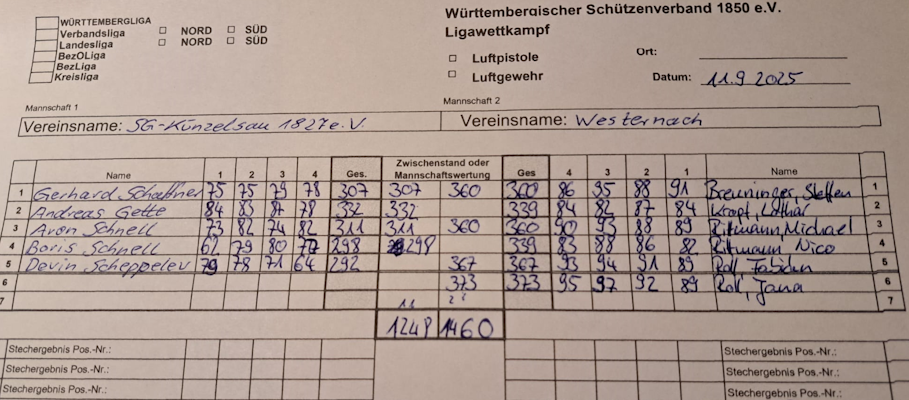 Württembergischer Schützenverband 1850 e.V.
WÜRTTEMBERGLIGA
Verbandsliga NORD SÜD
Landesliga NORD SÜD
BezOLiga
BezLiga
Kreisliga
Ligawettkampf
Luftpistole Ort:
Luftgewehr Datum: 11.9 2025
Mannschaft 1 Mannschaft 2
Vereinsname: SG-Künzelsau 1827 e.V. Vereinsname: Westernach
Name 1 2 3 4 Ges. Zwischenstand oder Mannschaftswertung Ges 4 3 2 1 Name
1 Gerhard Schaffner 75 75 79 78 307 307 360 360 86 95 88 91 Breuninger, Steffen 1
2 Andreas Gette 84 83 87 78 332 332 339 84 82 87 84 Lothar 2
3 Aron Schnell 73 82 74 82 311 311 360 360 90 93 88 89 Rittmann, Michael 3
4 Boris Schnell 67 79 80 72 298 298 339 83 88 86 82 Rittmann, Nico 4
5 Devin Scheppelev 79 78 71 64 292 367 367 93 94 91 89 Roll, Fabian 5
6 373 373 95 97 92 89 Roll, Jana 6
7 7
1248 1460
Stechergebnis Pos.-Nr.: Stechergebnis Pos.-Nr.:
Stechergebnis Pos.-Nr.: Stechergebnis Pos.-Nr.:
Stechergebnis Pos.-Nr.: Stechergebnis Pos.-Nr.: